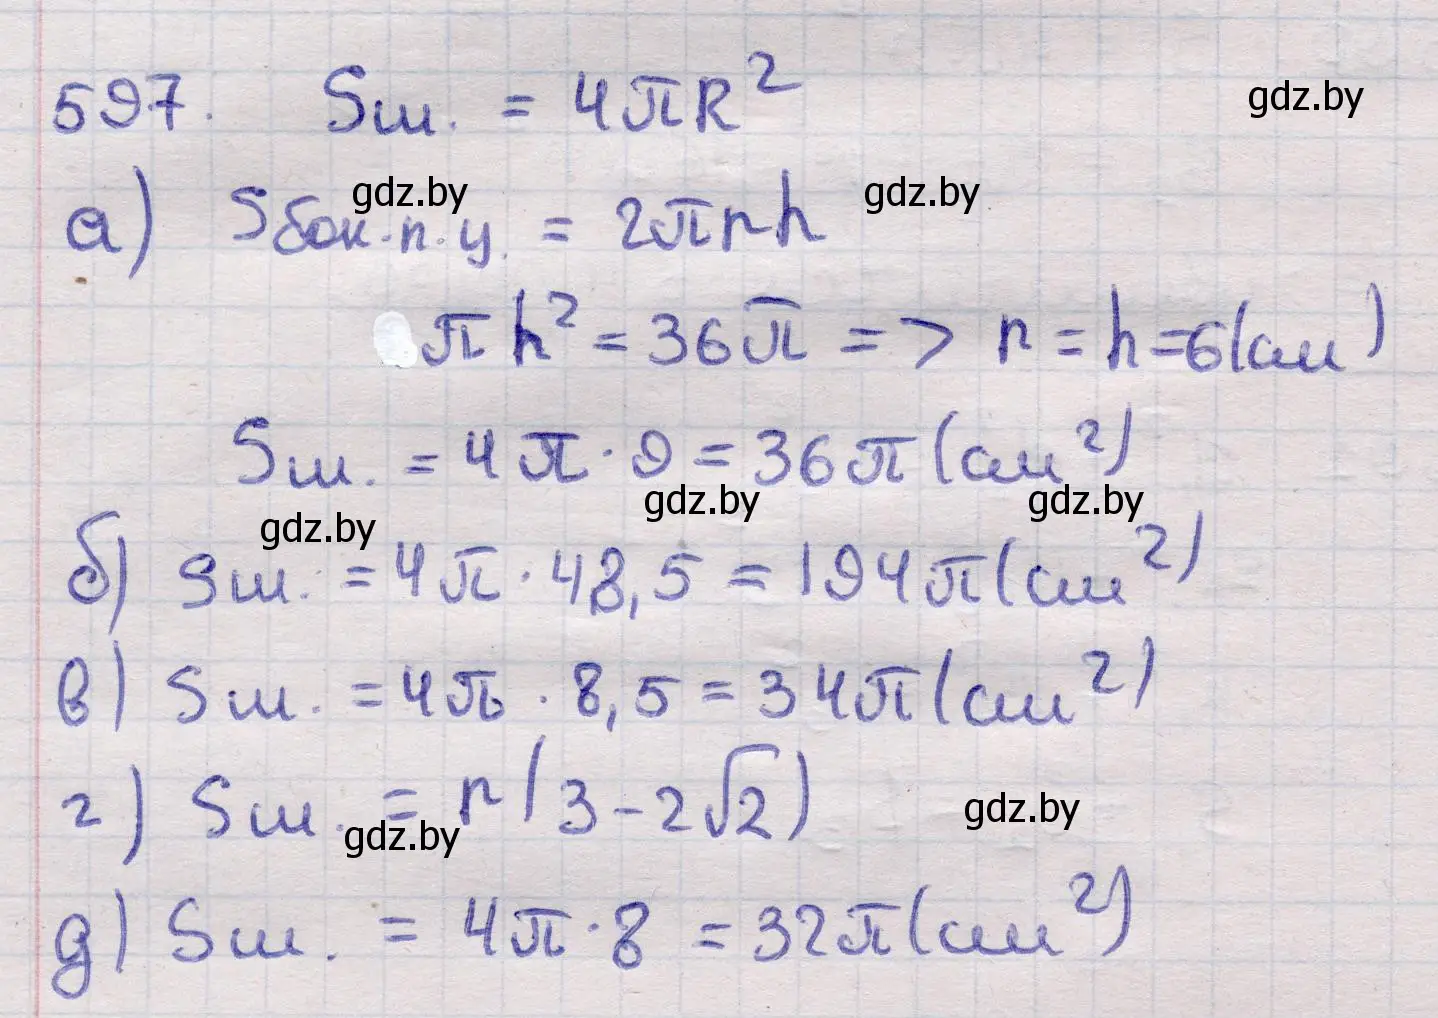 597. Sш. = 4πR² gdz.by
а) Sбок.п.ц. = 2πrh gdz.by gdz.by
πh² = 36π => r = h = 6(см)
Sш. = 4π · 9 = 36π(см²)
gdz.by gdz.by gdz.by
б) Sш. = 4π · 48,5 = 194π(см²)
в) Sш. = 4π · 8,5 = 34π(см²)
г) Sш. = r(3 - 2√2) gdz.by gdz.by
д) Sш. = 4π · 8 = 32π(см²)